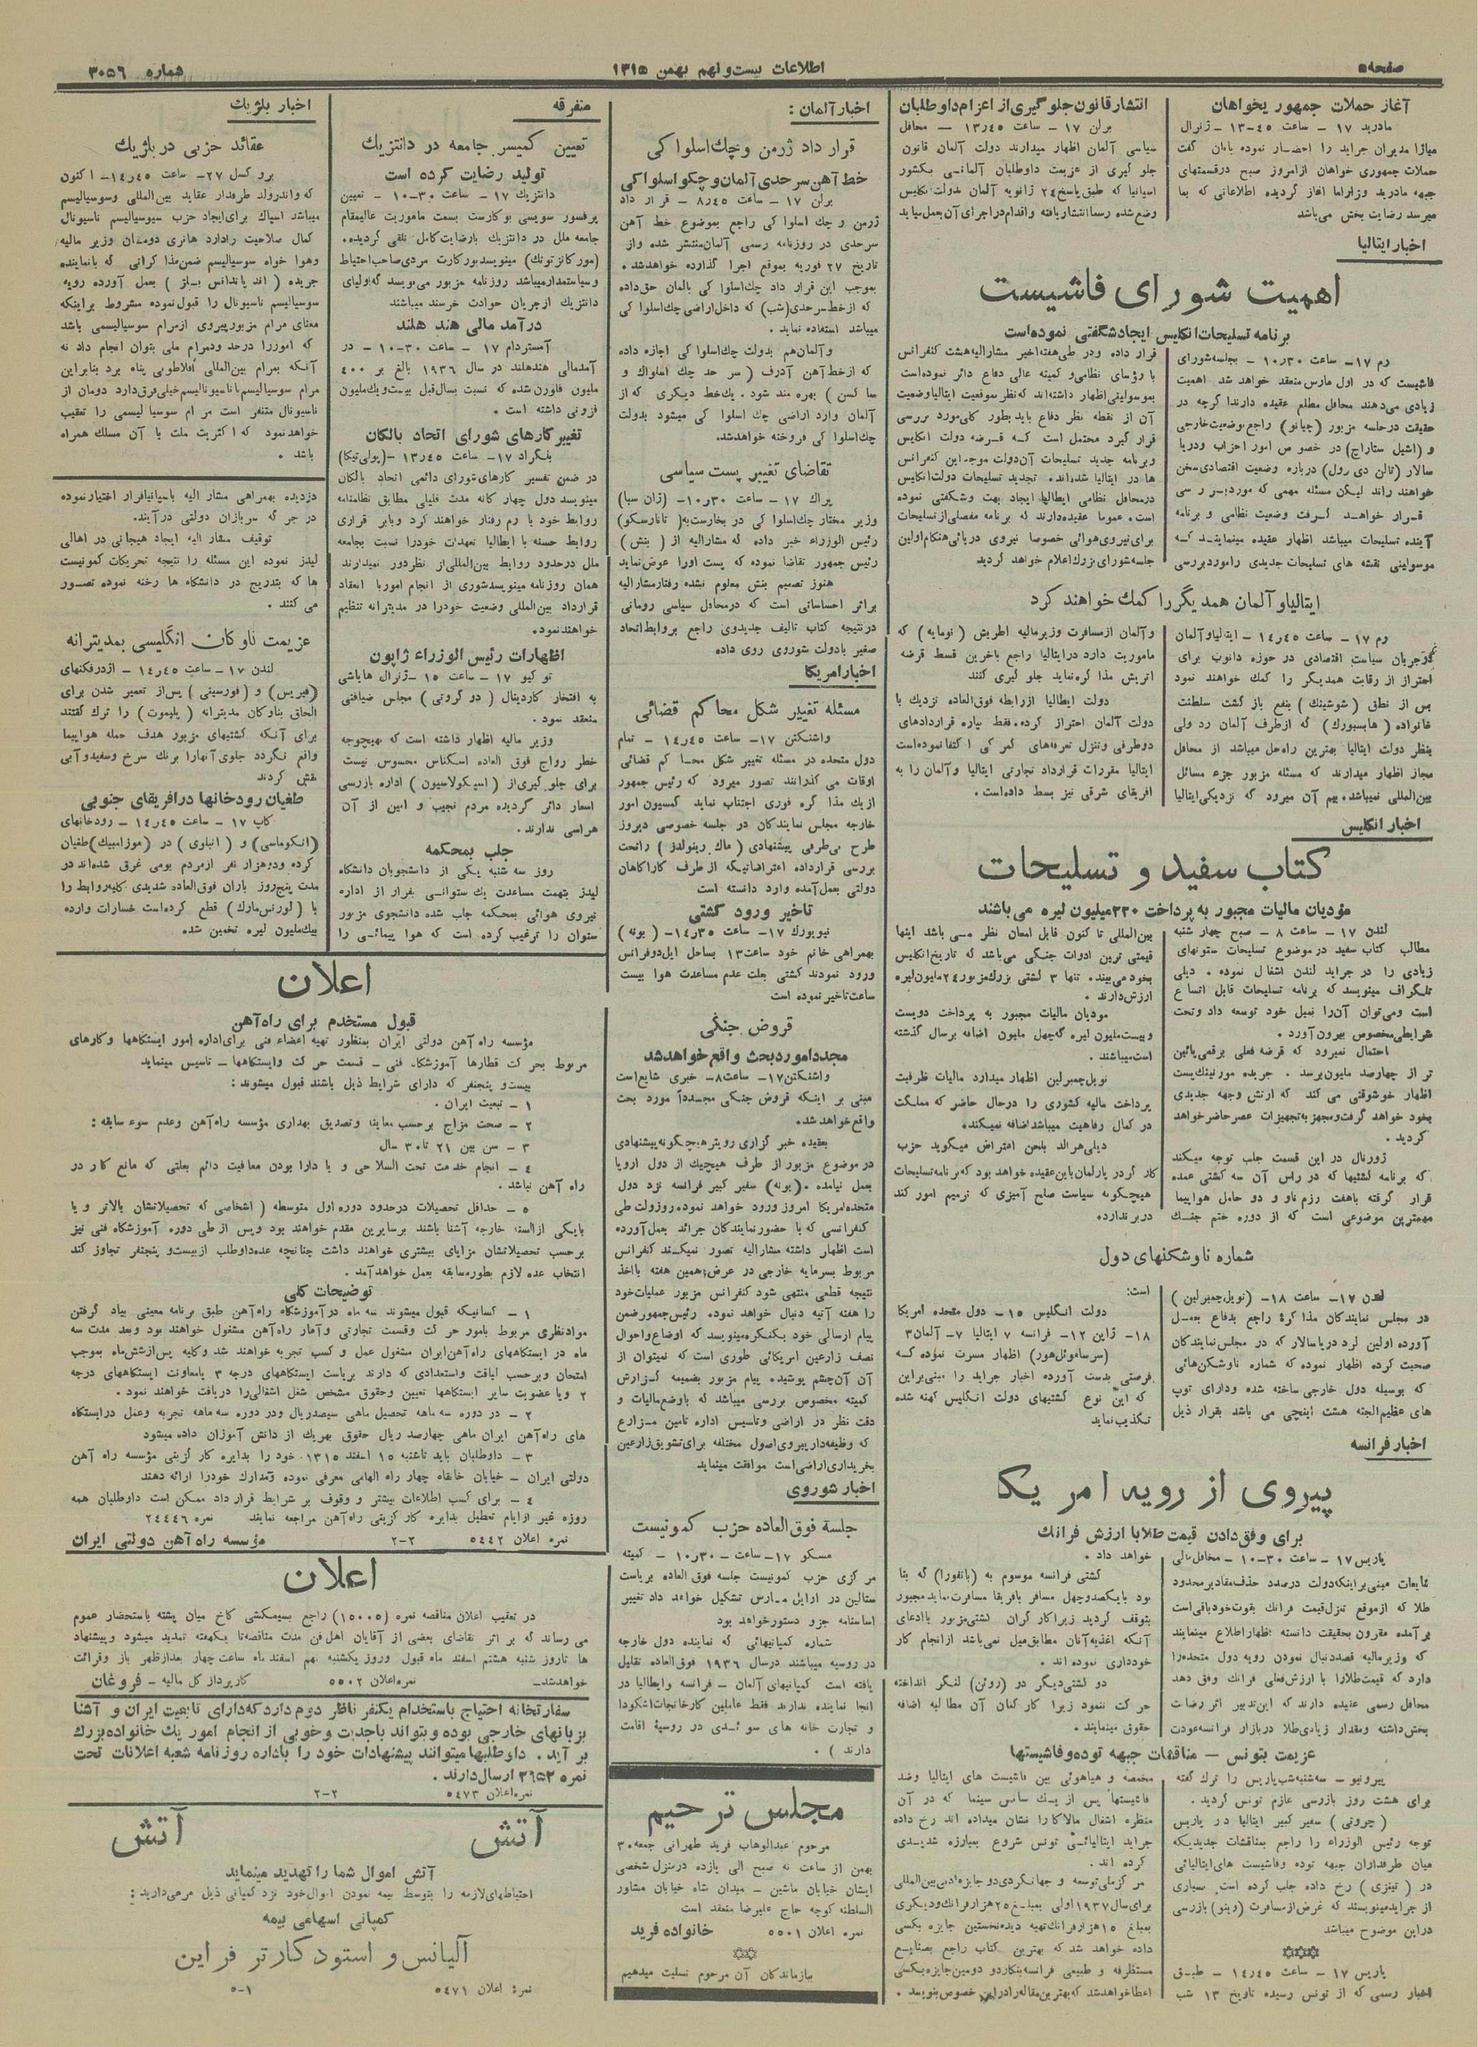 صفحه ۵
اطلاعات بیست و نهم بهمن ۱۳۱۵
شماره ۳۰۵۶
آغاز حملات جمهوریخواهان
مادرید ۱۷ – ساعت ۴۵-۱۳ – ژنرال
میاژا مدیران جراید را احضار نموده بآنان گفت
حملات جمهوری خواهان از امروز صبح در قسمتهای
جبهه مادرید و زاراما آغاز گردیده اطلاعاتی که بما
میرسد رضایت بخش می‌باشد
انتشار قانون جلوگیری از اعزام داوطلبان
برلن ۱۷ – ساعت ۴۵ر۱۳ – محافل
سیاسی آلمان اظهار میدارند دولت آلمان قانون
جلو گیری از عزیمت داوطلبان آلمانی بکشور
اسپانیا که طبق پاسخ ۲۴ ژانویه آلمان بدولت انگلیس
وضع شده رسما انتشار یافته و اقدام در اجرای آن بعمل میاید
اخبار ایتالیا
اهمیت شورای فاشیست
برنامه تسلیحات انگلیس ایجاد شگفتی نموده است
رم ۱۷ – ساعت ۳۰ر۱۰ – بجلسه شورای
فاشیست که در اول مارس منعقد خواهد شد اهمیت
زیادی می‌دهند محافل مطلع عقیده دارند اگرچه در
حقیقت در جلسه مزبور (چیانو) راجع بوضعیت خارجی
و (اشیل ستاراچ) در خصوص امور احزاب و دریا
سالار (تالن دی رول) درباره وضعیت اقتصادی سخن
خواهند راند لیکن مسئله مهمی که مورد بررسی
قرار خواهد گرفت وضعیت نظامی و برنامه
آینده تسلیحات میباشد اظهار عقیده مینمایند که
موسولینی نقشه های تسلیحات جدیدی را مورد بررسی
قرار داده و در طی هفته اخیر مشارالیه هشت کنفرانس
با رؤسای نظامی و کمیته عالی دفاع دائر نموده است
بموسولینی اظهار داشته‌اند که نظر بموقعیت ایتالیا وضعیت
آن از نقطه نظر دفاع باید بطور کلی مورد بررسی
قرار گیرد محتمل است که قرضه دولت انگلیس
و برنامه جدید تسلیحات آن دولت موجد این کنفرانس
ها در ایتالیا شده‌اند. تجدید تسلیحات دولت انگلیس
در محافل نظامی ایطالیا ایجاد بهت و شگفتی نموده
است. عموما عقیده دارند که برنامه مفصلی از تسلیحات
برای نیروی هوائی خصوصا نیروی دریائی هنگام اولین
جلسه شورای بزرگ اعلام خواهد گردید
ایتالیا و آلمان همدیگر را کمک خواهند کرد
رم ۱۷ – ساعت ۴۵ر۱۴ – ایتالیا و آلمان
در جریان سیاست اقتصادی در حوزه دانوب برای
احتراز از رقابت همدیگر را کمک خواهند نمود
پس از نطق (شوشینگ) بنفع باز گشت سلطنت
خانواده (هابسبورک) که از طرف آلمان رد ولی
بنظر دولت ایتالیا بهترین راه حل میباشد از محافل
مجاز اظهار میدارند که مسئله مزبور جزء مسائل
بین‌المللی نمیباشد. بیم آن میرود که نزدیکی ایتالیا
و آلمان از مسافرت وزیر مالیه اطریش (نومایه) که
ماموریت دارد در ایتالیا راجع باخرین قسط قرضه
اتریش مذاکره نماید جلو گیری کنند
دولت ایطالیا از رابطه فوق‌العاده نزدیک با
دولت آلمان احتراز کرده. فقط بپاره قراردادهای
دوطرفی و تنزل تعرفه‌های گمرکی اکتفا نموده است
ایتالیا مقررات قرارداد تجارتی ایتالیا و آلمان را به
افریقای شرقی نیز بسط داده است.
اخبار انگلیس
کتاب سفید و تسلیحات
مؤدیان مالیات مجبور به پرداخت ۲۲۰ میلیون لیره می‌باشند
لندن ۱۷ – ساعت ۸ – صبح چهار شنبه
مطالب کتاب سفید در موضوع تسلیحات ستونهای
زیادی را در جراید لندن اشغال نموده. دیلی
تلگراف مینویسد که برنامه تسلیحات قابل اتساع
است و میتوان آن را بمیل خود توسعه داد و تحت
شرایطی مخصوص بیرون آورد.
احتمال نمیرود که قرضه فعلی برقمی پائین
تر از چهارصد ملیون برسد. جریده مورنینگ پست
اظهار خوشوقتی می کند که ارتش وجهه جدیدی
بخود خواهد گرفت و مجهز به تجهیزات عصر حاضر خواهد
گردید.
ژورنال در این قسمت جلب توجه میکند
که برنامه کشتیها که در راس آن سه کشتی عمده
قرار گرفته باهفت رزم ناو و دو حامل هواپیما
مهمترین موضوعی است که از دوره ختم جنگ
بین‌المللی تا کنون قابل امعان نظر می باشد اینها
قیمتی ترین ادوات جنگی می‌باشد که تاریخ انگلیس
بخود می‌بیند. تنها ۳ کشتی بزرگ مزبور ۲۴ ملیون لیره
ارزش دارند.
مودیان مالیات مجبور به پرداخت دویست
و بیست ملیون لیره که چهل ملیون اضافه بر سال گذشته
است میباشند.
نویل چمبرلین اظهار میدارد مالیات ظرفیت
پرداخت مالیه کشوری را در حال حاضر که مملکت
در کمال رفاهیت میباشد اضافه نمیکند.
دیلی هرالد بلحن اعتراض میگوید حزب
کارگر در پارلمان باین عقیده خواهد بود که برنامه تسلیحات
هیچگونه سیاست صلح آمیزی که ترمیم امور کند
در بر ندارد.
شماره ناوشکنهای دول
لندن ۱۷ – ساعت ۱۸ – (نویل چمبرلین)
در مجلس نمایندگان مذاکره راجع بدفاع بعمل
آورده اولین لرد دریاسالار که در مجلس نمایندگان
صحبت کرده اظهار نموده که شماره ناوشکن‌هائی
که بوسیله دول خارجی ساخته شده و دارای توپ
های عظیم‌الجثه هشت اینچی می باشد بقرار ذیل
است:
دولت انگلیس ۱۵ – دول متحده امریکا
۱۸ – ژاپن ۱۲ – فرانسه ۷ ایتالیا ۷ – آلمان ۳
(سرساموئل هور) اظهار مسرت نموده که
فرصتی بدست آورده اخبار جراید را مبنی بر این
که این نوع کشتیهای دولت انگلیس کهنه شده
تکذیب نماید
اخبار فرانسه
پیروی از رویه امریکا
برای وفق دادن قیمت طلا با ارزش فرانک
پاریس ۱۷ – ساعت ۳۰-۱۰ – محافل مالی
شایعات مبنی بر اینکه دولت درصدد حذف مقادیر محدود
طلا که از موقع تنزل قیمت فرانک بقوت خود باقی است
بر آمده مقرون بحقیقت دانسته اظهار اطلاع مینمایند
که وزیر مالیه قصد دنبال نمودن رویه دول متحده را
دارد که قیمت طلا را با ارزش فعلی فرانک وفق دهد
محافل رسمی عقیده دارند که این تدبیر اثر رضایت
بخش داشته و مقدار زیادی طلا در بازار فرانسه عودت
خواهد داد.
کشتی فرانسه موسوم به (بانفورا) که بنا
بود با یکصد و چهل مسافر بافریقا مسافرت نماید مجبور
بتوقف گردید زیرا کارگران کشتی مزبور با ادعای
آنکه اغذیه آنان مطابق میل نمی‌باشد از انجام کار
خودداری نموده اند.
دو کشتی دیگر در (روئن) لنگر انداخته
حرکت ننمود زیرا کارکنان آن مطالبه اضافه
حقوق مینمایند.
عزیمت بتونس – مناقشات جبهه توده و فاشیستها
پیرونیو – سه شنبه شب پاریس را ترک گفته
برای هشت روز بازرسی عازم تونس گردید.
(چروتی) سفیر کبیر ایتالیا در پاریس
توجه رئیس الوزراء را راجع بمناقشات جدیدیکه
میان طرفداران جبهه توده و فاشیست های ایتالیائی
در (تینزی) رخ داده جلب کرده است. بسیاری
از جراید مینویسند که غرض از مسافرت (وینو) بازرسی
در این موضوع میباشد
پاریس ۱۷ – ساعت ۴۵ر۱۴ – طبق
اخبار رسمی که از تونس رسیده تاریخ ۱۳ شب
مخمصه و هیاهوئی بین فاشیست های ایتالیا و ضد
فاشیستها پس از یک سانس سینما که در آن
منظره اشغال مالاکا را نشان میداده اند رخ داده
جراید ایتالیائی تونس شروع بمبارزه شدیدی
کرده اند.
مرکز ملی توسعه و جهانگردی دو جایزه ادبی بین‌المللی
برای سال ۱۹۳۷ اولی بمبلغ ۲۵ هزار فرانک و دیگری
بمبلغ ۱۵ هزار فرانک تهیه دیده نخستین جایزه بکسی
داده خواهد شد که بهترین کتاب راجع بصنایع
مستظرفه و طبیعی فرانسه بنگارد و دومین جایزه بکسی
اعطا خواهد شد که بهترین مقاله را در این خصوص بنویسد.
اخبار آلمان :
قرار داد ژرمن و چک اسلواکی
خط آهن سرحدی آلمان و چکو اسلواکی
برلن ۱۷ – ساعت ۴۵ر۸ – قرار داد
ژرمن و چک اسلواکی راجع بموضوع خط آهن
سرحدی در روزنامه رسمی آلمان منتشر شده و از
تاریخ ۲۷ فوریه بموقع اجرا گذارده خواهد شد.
بموجب این قرار داد چک اسلواکی بالمان حق داده
که از خط سرحدی (شب) که داخل اراضی چک اسلواکی
میباشد استفاده نماید.
و آلمان هم بدولت چک اسلواکی اجازه داده
که از خط آهن آدرف (سر حد چک اسلواک و
ساکسن) بهره مند شود. یک خط دیگری که از
آلمان وارد اراضی چک اسلواکی میشود بدولت
چک اسلواکی فروخته خواهد شد.
تقاضای تغییر پست سیاسی
پراک ۱۷ – ساعت ۳۰ر۱۰ – (ژان سبا)
وزیر مختار چک اسلواکی در بخارست به (تاتارسکو)
رئیس الوزراء خبر داده که مشارالیه از (بنش)
رئیس جمهور تقاضا نموده که پست او را عوض نماید
هنوز تصمیم بنش معلوم نشده رفتار مشارالیه
براثر احساساتی است که در محافل سیاسی رومانی
در نتیجه کتاب تالیف جدید وی راجع بروابط اتحاد
صغیر با دولت شوروی روی داده
اخبار امریکا
مسئله تغییر شکل محاکم قضائی
واشنگتن ۱۷ – ساعت ۴۵ر۱۴ – تمام
دول متحده در مسئله تغییر شکل محاکم قضائی
اوقات می گذرانند تصور میرود که رئیس جمهور
از یک مذاکره فوری اجتناب نماید کمسیون امور
خارجه مجلس نمایندگان در جلسه خصوصی دیروز
طرح بی‌طرفی پیشنهادی (ماک رینولدز) را تحت
بررسی قرار داده اعتراضاتیکه از طرف کارآگاهان
دولتی بعمل آمده وارد دانسته است
تاخیر ورود کشتی
نیویورک ۱۷ – ساعت ۳۵ر۱۴ – (بونه)
بهمراهی خانم خود ساعت ۱۳ بساحل ایل دو فرانس
ورود نمودند کشتی بعلت عدم مساعدت هوا بیست
ساعت تاخیر نموده است
قروض جنگی
مجددا مورد بحث واقع خواهد شد
واشنگتن ۱۷ – ساعت ۸ – خبری شایع است
مبنی بر اینکه قروض جنگی مجدداً مورد بحث
واقع خواهد شد.
بعقیده خبر گزاری رویتر هیچگونه پیشنهادی
در موضوع مزبور از طرف هیچیک از دول اروپا
بعمل نیامده. (بونه) سفیر کبیر فرانسه نزد دول
متحده امریکا امروز ورود خواهد نموده روزولت طی
کنفرانسی که با حضور نمایندگان جراید بعمل آورده
است اظهار داشته مشارالیه تصور نمیکند کنفرانس
مربوط بسرمایه خارجی در عرض همین هفته باخذ
نتیجه قطعی منتهی شود کنفرانس مزبور عملیات خود
را هفته آتیه دنبال خواهد نمود. رئیس جمهور ضمن
پیام ارسالی خود بکنگره مینویسد که اوضاع و احوال
نصف زارعین امریکائی طوری است که نمیتوان از
آن چشم پوشید. پیام مزبور بضمیمه گزارش
کمیته مخصوص بررسی میباشد که باوضع مالیات و
دقت نظر در اراضی و تاسیس اداره تامین مزارع
که وظیفه‌دار پیروی اصول مختلفه برای تشویق زارعین
بخریداری اراضی است موافقت مینماید
اخبار شوروی
جلسهٔ فوق العاده حزب کمونیست
مسکو ۱۷ – ساعت – ۳۰ر۱۰ – کمیته
مرکزی حزب کمونیست جلسه فوق العاده بریاست
ستالین در اوایل مارس تشکیل خواهد داد تغییر
اساسنامه جزو دستور خواهد بود
شماره کمپانیهائی که نماینده دول خارجه
در روسیه میباشند در سال ۱۹۳۶ فوق العاده تقلیل
یافته است کمپانیهای آلمان – فرانسه و ایطالیا در
آنجا نماینده ندارند فقط عاملین کارخانجات اشکودا
و تجارت خانه های سوئدی در روسیهٔ اقامت
دارند).
مجلس ترحیم
مرحوم عبدالوهاب فرید طهرانی جمعه ۳۰
بهمن از ساعت نه صبح الی یازده در منزل شخصی
ایشان خیابان ماشین – میدان شاه خیابان مشاور
السلطنه کوچه حاج علیرضا منعقد است
نمره اعلان ۵۵۰۱ خانواده فرید
ببازماندگان آن مرحوم تسلیت میدهیم
متفرقه
تعیین کمیسر جامعه در دانتزیک
تولید رضایت کرده است
دانتزیک ۱۷ – ساعت ۳۰-۱۰ – تعیین
پرفسور سویسی بوکارست بسمت ماموریت عالیمقام
جامعه ملل در دانتزیک بارضایت کامل تلقی گردیده.
(مورکانزتونک) مینویسد بورکارت مردی صاحب احتیاط
و سیاستمدار میباشد روزنامه مزبور می نویسد که اولیای
دانتزیک از جریان حوادث خرسند میباشند
درآمد مالی هند هلند
آمستردام ۱۷ – ساعت ۳۰-۱۰ – در
آمد مالی هند هلند در سال ۱۹۳۶ بالغ بر ۴۰۰
ملیون فلورن شده که نسبت بسال قبل بیست و یک ملیون
فزونی داشته است.
تغییر کارهای شورای اتحاد بالکان
بلگراد ۱۷ – ساعت ۴۵ر۱۳ – (پولی‌تیکا)
در ضمن تفسیر کارهای شورای دائمی اتحاد بالکان
مینویسد دول چهار گانه مدت قلیلی مطابق نظامنامه
روابط خود با رم رفتار خواهند کرد و بنابر قراری
روابط حسنه با ایطالیا تعهدات خود را نسبت بجامعه
ملل در حدود روابط بین‌المللی از نظر دور نمیدارند
همان روزنامه مینویسد شوری از انجام امور با انعقاد
قرارداد بین‌المللی وضعیت خود را در مدیترانه تنظیم
خواهند نمود.
اظهارات رئیس الوزراء ژاپون
توکیو ۱۷ – ساعت ۱۵ – ژنرال هایاشی
به افتخار کاردینال (دوگروتی) مجلس ضیافتی
منعقد نمود.
وزیر مالیه اظهار داشته است که بهیچوجه
خطر رواج فوق العاده اسکناس محسوس نیست
برای جلو گیری از (اسپکولاسیون) اداره بازرسی
اسعار دائر گردیده مردم نجیب و امین از آن
هراسی ندارند.
جلب بمحکمه
روز سه شنبه یکی از دانشجویان دانشگاه
لیدز بتهمت مساعدت یک ستوانی بفرار از اداره
نیروی هوائی بمحکمه جلب شده دانشجوی مزبور
ستوان را ترغیب کرده است که هواپیمائی را
اخبار بلژیک
عقائد حزبی در بلژیک
بروکسل ۲۷ – ساعت ۴۵ر۱۴ – اکنون
که واندرولد طرفدار عقاید بین‌المللی و سوسیالیسم
میباشد اسپاک برای ایجاد حزب سیوسیالیسم ناسیونال
کمال صلاحیت را دارد هانری دومان وزیر مالیه
و هوا خواه سوسیالیسم ضمن مذاکراتی که بانماینده
جریده (اندپاندانس بلژ) بعمل آورده رویه
سوسیالیسم ناسیونال را قبول نموده مشروط براینکه
معنای مرام مزبور پیروی از مرام سوسیالیسمی باشد
که امور را در حدود مرام ملی بتوان انجام داد نه
آنکه بمرام بین‌المللی افلاطونی پناه برد بنابراین
مرام سوسیالیسم با ناسیونالیسم خیلی فرق دارد دومان از
ناسیونال متنفر است مرام سوسیالیسمی را تعقیب
خواهد نمود که اکثریت ملت با آن مسلک همراه
باشد.
دزدیده بهمراهی مشار الیه باسپانیا فرار اختیار نموده
در جرگه سربازان دولتی درآیند.
توقیف مشار الیه ایجاد هیجانی در اهالی
لیدز نموده این مسئله را نتیجه تحریکات کمونیست
ها که بتدریج در دانشگاه ها رخنه نموده تصور
می کنند.
عزیمت ناوکان انگلیسی بمدیترانه
لندن ۱۷ – ساعت ۴۵ر۱۴ – اژدرفکنهای
(فیریس) و (فورسیتی) پس از تعمیر شدن برای
الحاق بناوکان مدیترانه (پلیموت) را ترک گفتند
برای آنکه کشتیهای مزبور هدف حمله هواپیما
واقع نگردد جلوی آنها را برنگ سرخ و سفید و آبی
نقش کردند
طغیان رودخانه‌ها در افریقای جنوبی
کاپ ۱۷ – ساعت ۴۵ر۱۴ – رودخانهای
(انکوماسی) و (انبلوی) در (موزامبیک) طغیان
کرده و دو هزار نفر از مردم بومی غرق شده‌اند در
مدت پنج روز باران فوق‌العاده شدیدی کلیه روابط را
با (لورنس‌مارک) قطع کرده است خسارات وارده
بیک ملیون لیره تخمین شد.
اعلان
قبول مستخدم برای راه آهن
مؤسسه راه آهن دولتی ایران بمنظور تهیه اعضاء فنی برای اداره امور ایستگاهها و کارهای
مربوط بحرکت قطارها آموزشگاه فنی – قسمت حرکت و ایستگاهها – تاسیس مینماید
بیست و پنجنفر که دارای شرایط ذیل باشند قبول میشوند:
۱ – تبعیت ایران.
۲ – صحت مزاج برحسب معاینه و تصدیق بهداری مؤسسه راه آهن و عدم سوء سابقه:
۳ – سن بین ۲۱ تا ۳۰ سال
۴ – انجام خدمت تحت السلاحی و یا دارا بودن معافیت دائم بعلتی که مانع کار در
راه آهن نباشد.
۵ – حداقل تحصیلات در حدود دوره اول متوسطه (اشخاصی که تحصیلاتشان بالاتر و یا
بایکی از السنه خارجه آشنا باشند برسایرین مقدم خواهند بود و پس از طی دوره آموزشگاه فنی نیز
برحسب تحصیلاتشان مزایای بیشتری خواهند داشت چنانچه عده داوطلب از بیست و پنجنفر تجاوز کند
انتخاب عده لازم بطور مسابقه بعمل خواهد آمد.
توضیحات کلی
۱ – کسانیکه قبول میشوند سه ماه در آموزشگاه راه آهن طبق برنامه معینی بیاد گرفتن
مواد نظری مربوط بامور حرکت و قسمت تجارتی و آمار راه آهن مشغول خواهند بود و بعد مدت سه
ماه در ایستگاههای راه آهن ایران مشغول عمل و کسب تجربه خواهند شد و کلیه پس از شش ماه بموجب
امتحان و برحسب لیاقت و استعدادی که دارند بریاست ایستگاههای درجه ۳ یا معاونت ایستگاههای درجه
۲ و یا عضویت سایر ایستگاهها تعیین و حقوق مشخص شغل اشغالی را دریافت خواهند نمود.
۲ – در دوره سه ماهه تحصیل ماهی سیصد ریال و در دوره سه ماهه تجربه و عمل در ایستگاه
های راه آهن ایران ماهی چهارصد ریال حقوق بهریک از دانش آموزان داده میشود
۳ – داوطلبان باید تا شنبه ۱۵ اسفند ۱۳۱۵ خود را بدایره کارگزینی مؤسسه راه آهن
دولتی ایران – خیابان خانقاه چهار راه الهامی معرفی نموده و مدارک خود را ارائه دهند
۴ – برای کسب اطلاعات بیشتر و وقوف بر شرایط قرار داد ممکن است داوطلبان همه
روزه غیر از ایام تعطیل بدایره کارگزینی راه آهن مراجعه نمایند نمره ۲۴۴۴۶
نمره اعلان ۵۴۴۲ ۲-۲ مؤسسه راه آهن دولتی ایران
اعلان
در تعقیب اعلان مناقصه نمره (۱۵۰۰۵) راجع بسیمکشی کاخ میان پشته باستحضار عموم
می رساند که بر اثر تقاضای بعضی از آقایان اهل فن مدت مناقصه تا یکهفته تمدید میشود و پیشنهاد
ها تا روز شنبه هشتم اسفند ماه قبول و روز یکشنبه نهم اسفند ماه ساعت چهار بعد از ظهر باز و قرائت
خواهد شد. نمره اعلان ۵۵۰۲ کارپرداز کل مالیه – فروغان
سفارتخانه احتیاج باستخدام یکنفر ناظر دوم دارد که دارای تابعیت ایران و آشنا
بزبانهای خارجی بوده و بتواند باجدیت و خوبی از انجام امور یک خانواده بزرگ
بر آید. داوطلبها میتوانند پیشنهادات خود را باداره روزنامه شعبه اعلانات تحت
نمره ۲۶۵۲ ارسال دارند.
نمره اعلان ۵۴۷۳ ۲-۲
آتش آتش
آتش اموال شما را تهدید مینماید
احتیاطهای لازمه را بتوسط بیمه نمودن اموال خود نزد کمپانی ذیل مرعی دارید:
کمپانی اسهامی بیمه
آلیانس و استودکارتر فراین
نمره اعلان ۵۴۷۱ ۱-۵